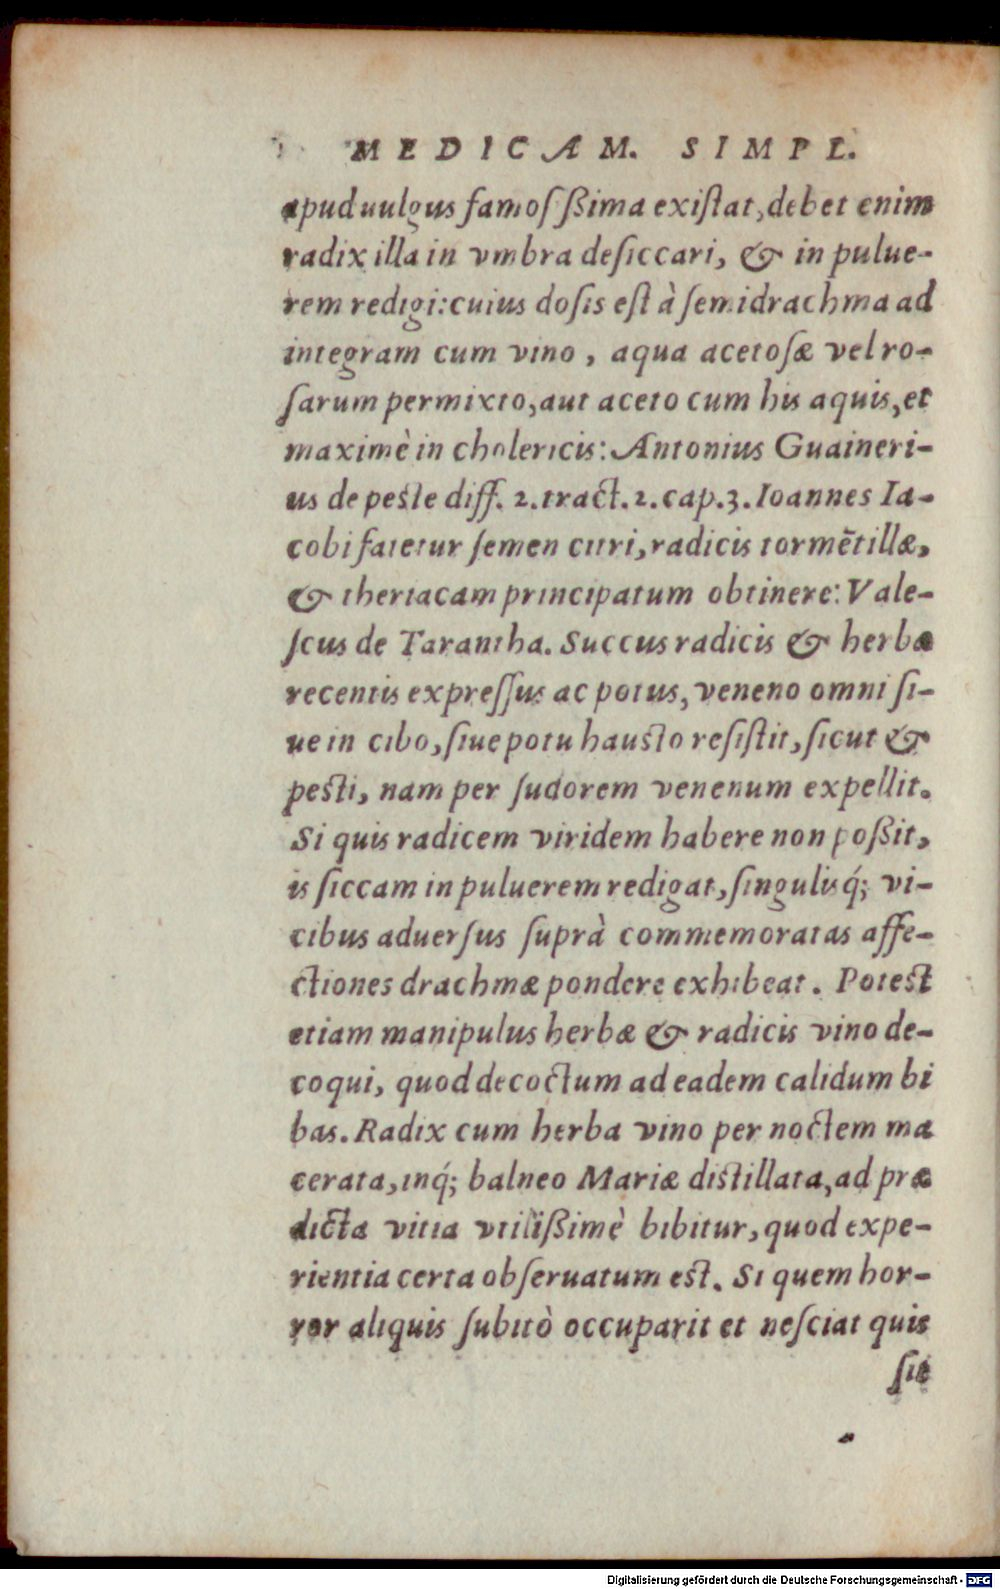 MEDICAM. SIMPL.
apud uulgus famosſßima existat, debet enim
radix illa in vmbra deſiccari, & in pulue-
rem redigi: cuius doſis eſt à ſemidrachma ad
integram cum vino, aqua acetoſæ vel ro-
ſarum permixto, aut aceto cum his aquis, et
maximè in cholericis: Antonius Guaineri-
us de peste diff. 2. tract. 2. cap. 3. Ioannes Ia-
cobi fatetur ſemen citri, radicis tormētillæ,
& theriacam principatum obtinere: Vale-
ſcus de Tarantha. Succus radicis & herbæ
recentis expreſſus ac potus, veneno omni ſi-
ue in cibo, ſiue potu hausto reſiſtit, ſicut &
pesti, nam per ſudorem venenum expellit.
Si quis radicem viridem habere non poßit,
is ſiccam in puluerem redigat, ſingulisq́; vi-
cibus aduerſus ſuprà commemoratas affe-
ctiones drachmæ pondere exhibeat. Potest
etiam manipulus herbæ & radicis vino de-
coqui, quod decoctum ad eadem calidum bi
bas. Radix cum herba vino per noctem ma
cerata, inq́; balneo Mariæ distillata, ad præ
dicta vitia vtilißimè bibitur, quod expe-
rientia certa obſeruatum est. Si quem hor-
ror aliquis ſubitò occuparit et neſciat quis
ſit
Digitalisierung gefördert durch die Deutsche Forschungsgemeinschaft - DFG